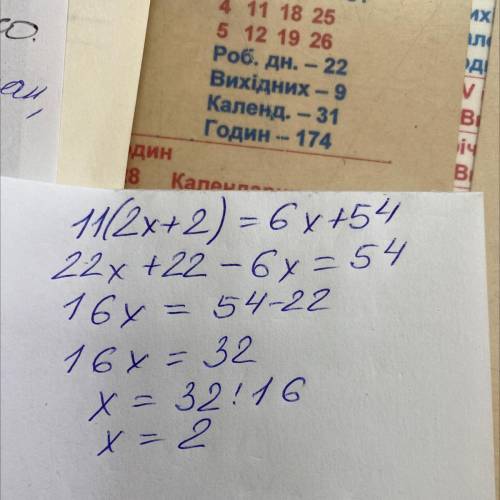 4 11 18 25
5 12 19 26
Роб. дн. – 22
Вихідних – 9
Календ. – 31
Годин – 174
11(2x+2) = 6x+54
22x+22-6x = 54
16x = 54-22
16x = 32
x = 32:16
x = 2